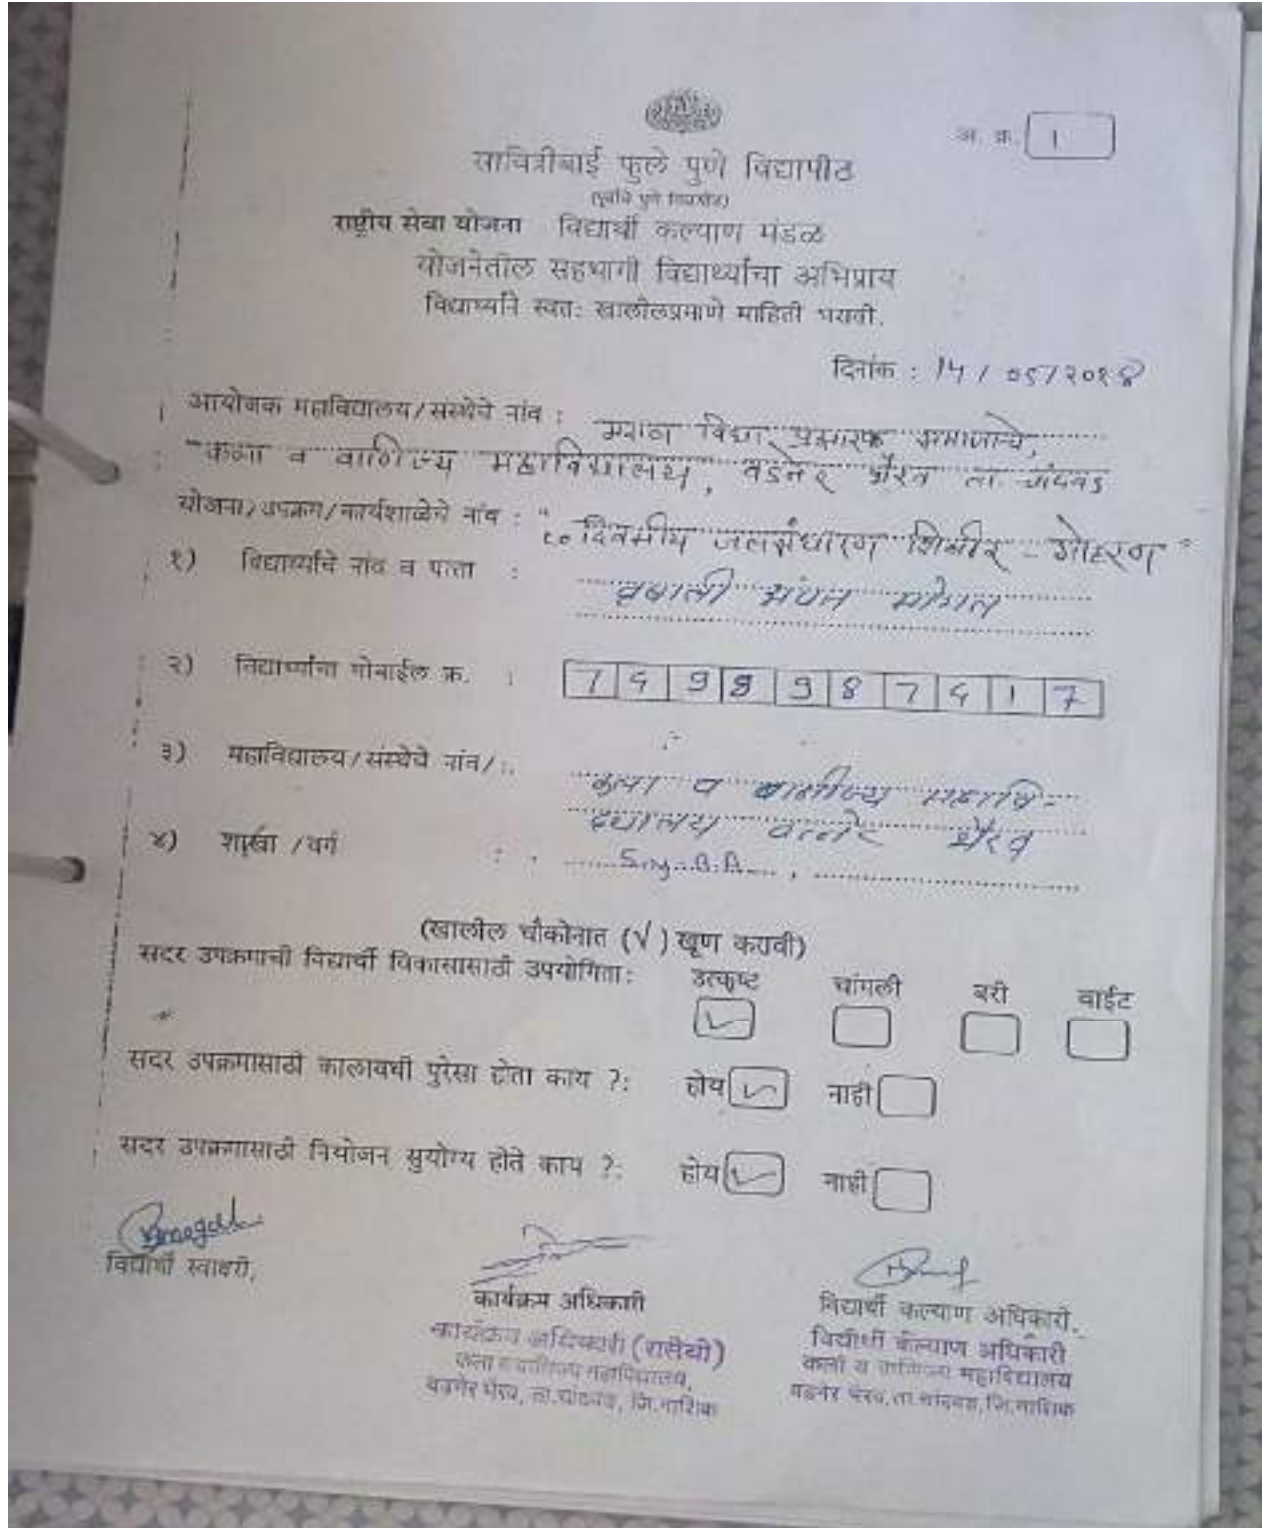 अ. क्र. 1
सावित्रीबाई फुले पुणे विद्यापीठ
(पूर्वीचे पुणे विद्यापीठ)
राष्ट्रीय सेवा योजना विद्यार्थी कल्याण मंडळ
योजनेतील सहभागी विद्यार्थ्यांचा अभिप्राय
विद्यार्थ्याने स्वतः खालीलप्रमाणे माहिती भरावी.
दिनांक : 14 / 05 / २०१८
आयोजक महाविद्यालय/संस्थेचे नांव : मराठा विद्या प्रसारक समाजाचे,
कला व वाणिज्य महाविद्यालय, वडनेर भैरव ता. चांदवड
योजना/उपक्रम/कार्यशाळेचे नांव : " दिवसीय जलसंधारण शिबीर - गोहरण "
१) विद्यार्थ्यांचे नांव व पत्ता : संपत
२) विद्यार्थ्यांचा मोबाईल क्र. :
३) महाविद्यालय/संस्थेचे नांव/ :. कला व वाणीज्य महावि-
द्यालय भैरव
४) शाखा / वर्ग : S.y.B.A.
(खालील चौकोनात (√) खूण करावी)
सदर उपक्रमाची विद्यार्थी विकासासाठी उपयोगिता: उत्कृष्ट चांगली बरी वाईट
सदर उपक्रमासाठी कालावधी पुरेसा होता काय ?: होय नाही
सदर उपक्रमासाठी नियोजन सुयोग्य होते काय ?: होय नाही
विद्यार्थी स्वाक्षरी,
कार्यक्रम अधिकारी
विद्यार्थी कल्याण अधिकारी.
कार्यक्रम अधिकारी (रासेयो)
कला व वाणिज्य महाविद्यालय,
वडनेर भैरव, ता.चांदवड, जि.नाशिक
विद्यार्थी कल्याण अधिकारी
कला व वाणिज्य महाविद्यालय
वडनेर भैरव, ता.चांदवड, जि.नाशिक